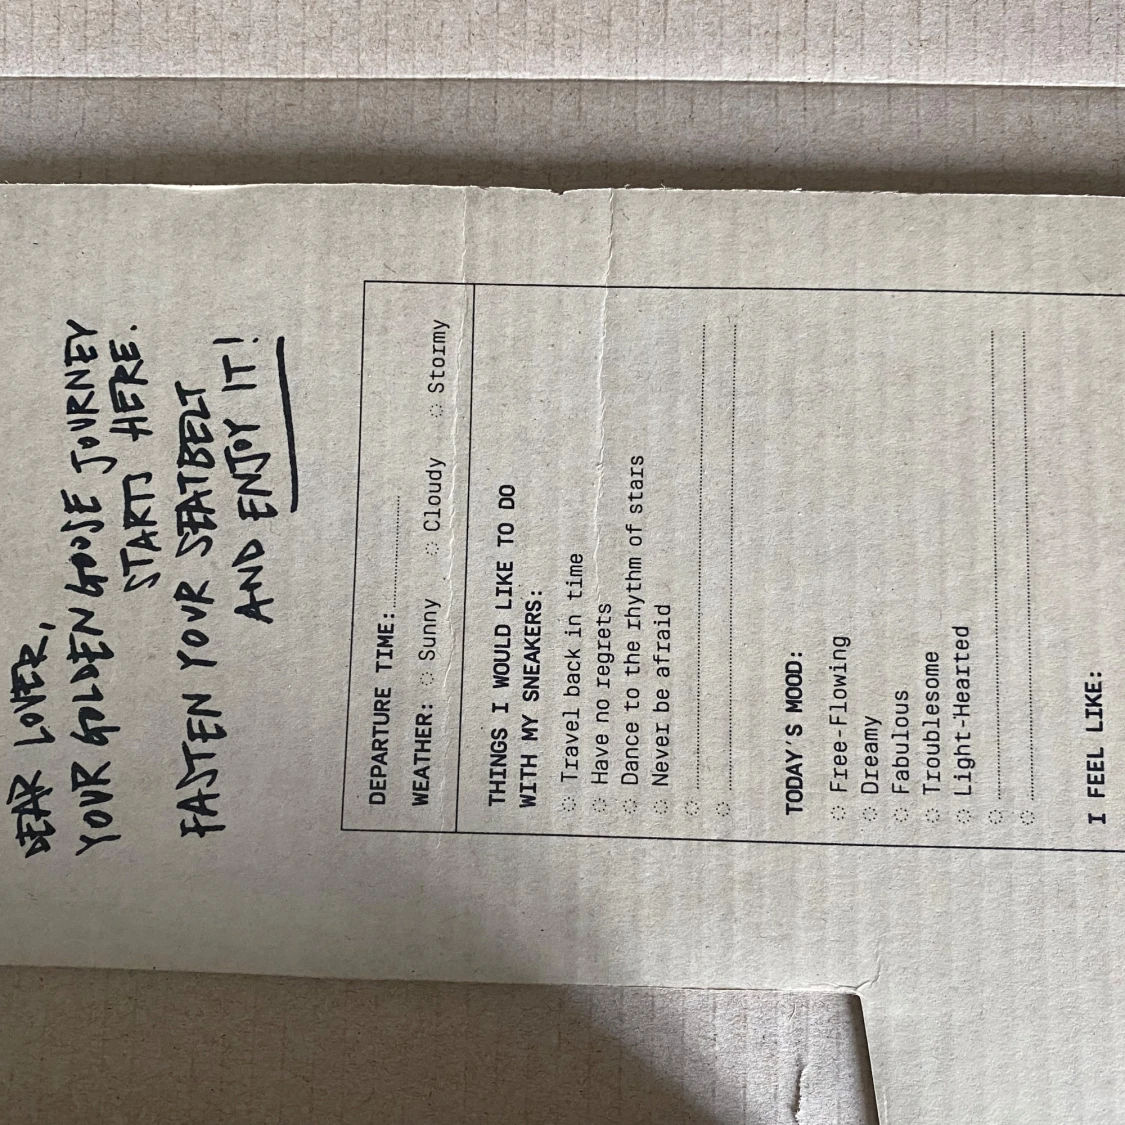 DEAR LOVER,
YOUR GOLDEN GOOSE JOURNEY
STARTS HERE.
FASTEN YOUR SEATBELT
AND ENJOY IT!
DEPARTURE TIME:
WEATHER: Sunny Cloudy Stormy
THINGS I WOULD LIKE TO DO
WITH MY SNEAKERS:
Travel back in time
Have no regrets
Dance to the rhythm of stars
Never be afraid
TODAY'S MOOD:
Free-Flowing
Dreamy
Fabulous
Troublesome
Light-Hearted
I FEEL LIKE: